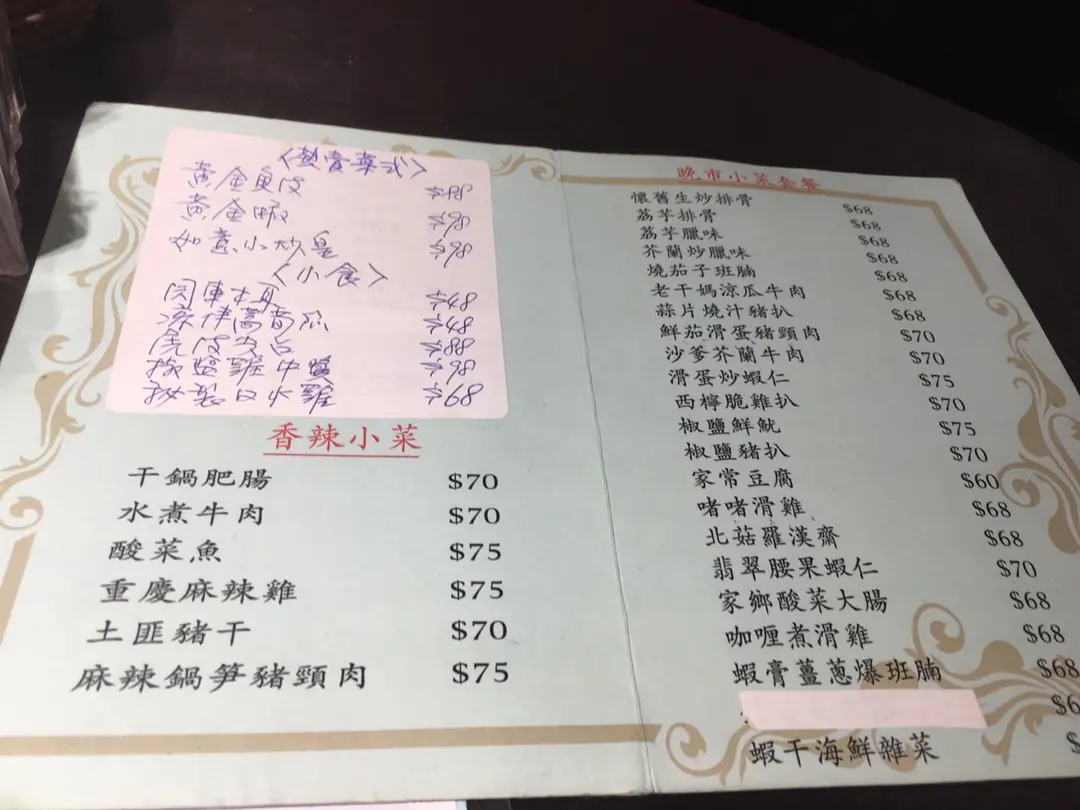 〈熱賣菜式〉
黃金魚皮 $88
黃金蝦 $98
如意小炒皇 $98
〈小食〉
$48
$48
$88
椒鹽雞中翼 $98
秘製口水雞 $68
香辣小菜
干鍋肥腸 $70
水煮牛肉 $70
酸菜魚 $75
重慶麻辣雞 $75
土匪豬干 $70
麻辣鍋笋豬頸肉 $75
晚市小菜套餐
懷舊生炒排骨 $68
荔芋排骨 $68
荔芋臘味 $68
芥蘭炒臘味 $68
燒茄子班腩 $68
老干媽涼瓜牛肉 $68
蒜片燒汁豬扒 $68
鮮茄滑蛋豬頸肉 $70
沙爹芥蘭牛肉 $70
滑蛋炒蝦仁 $75
西檸脆雞扒 $70
椒鹽鮮魷 $75
椒鹽豬扒 $70
家常豆腐 $60
啫啫滑雞 $68
北菇羅漢齋 $68
翡翠腰果蝦仁 $70
家鄉酸菜大腸 $68
咖喱煮滑雞 $68
蝦膏薑蔥爆班腩 $68
$6
蝦干海鮮雜菜 $